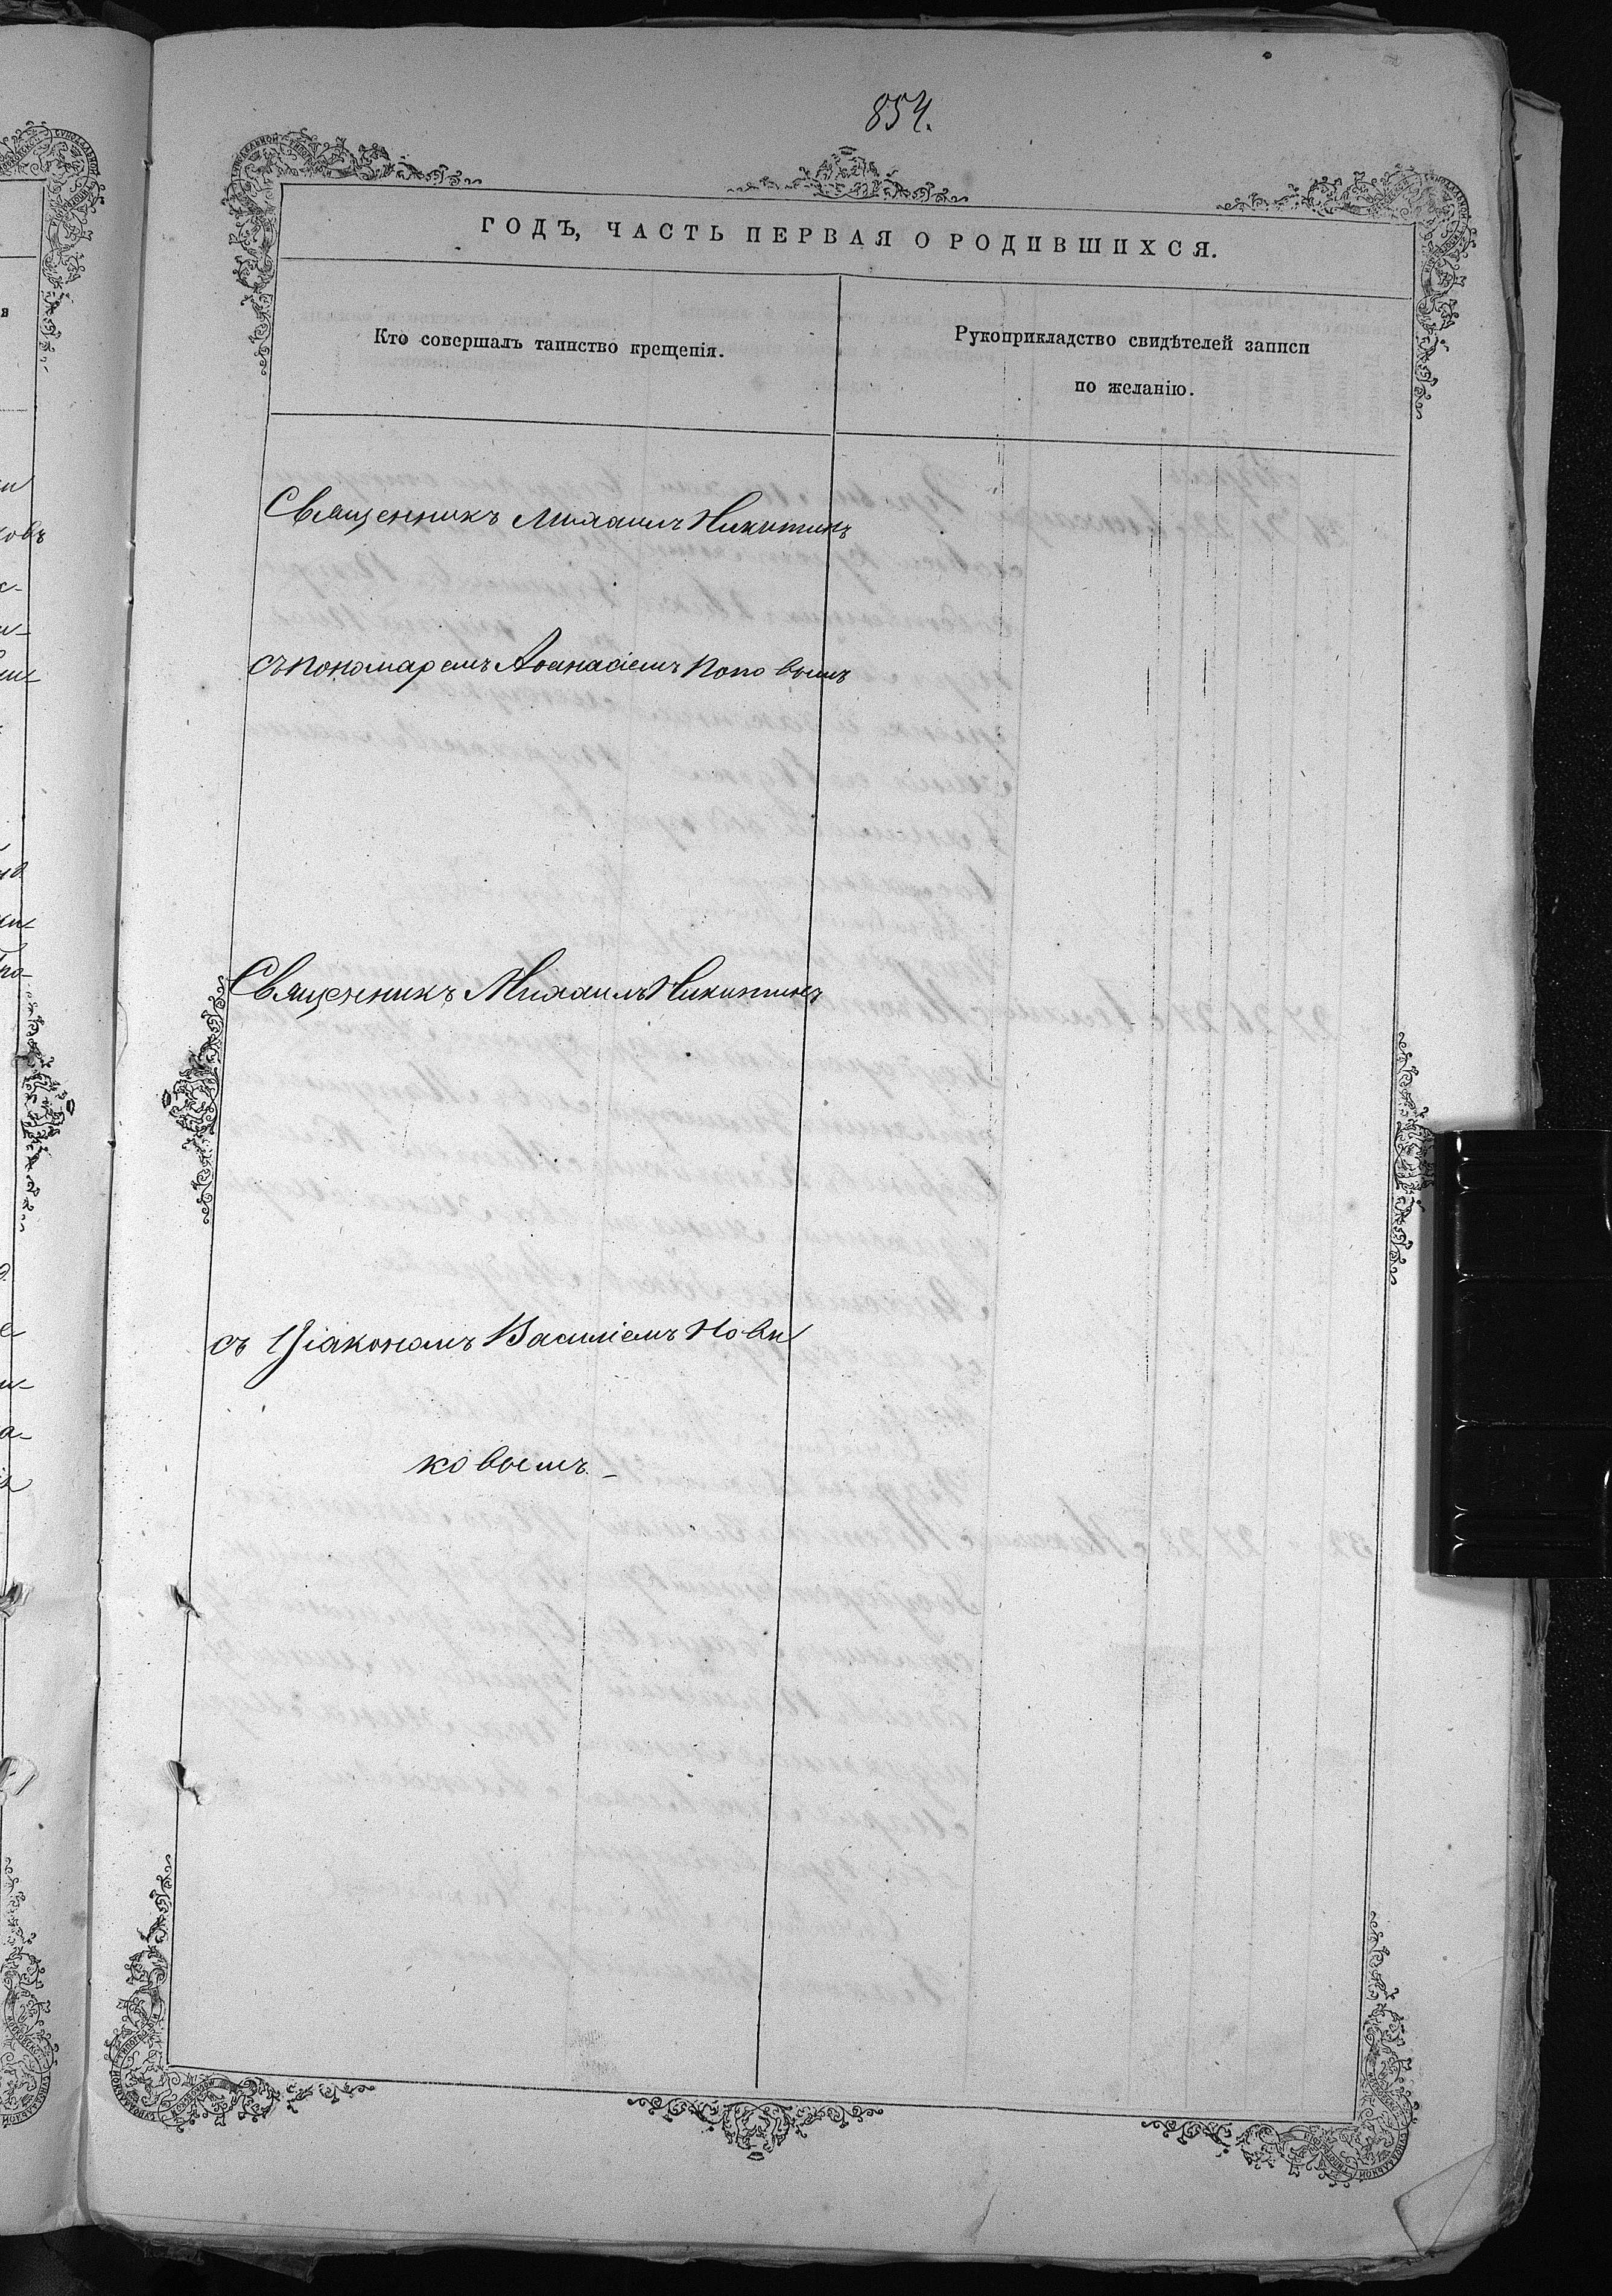 854.
ГОДЪ, ЧАСТЬ ПЕРВАЯ О РОДИВШИХСЯ.
Кто совершалъ таинство крещенія.
Рукоприкладство свидѣтелей записи
по желанію.
Священникъ Михаилъ Никитинъ
съ пономаремъ Аѳанасіемъ Поповымъ
Священникъ Михаилъ Никитинъ
съ Діакономъ Василіемъ Нови
ковымъ